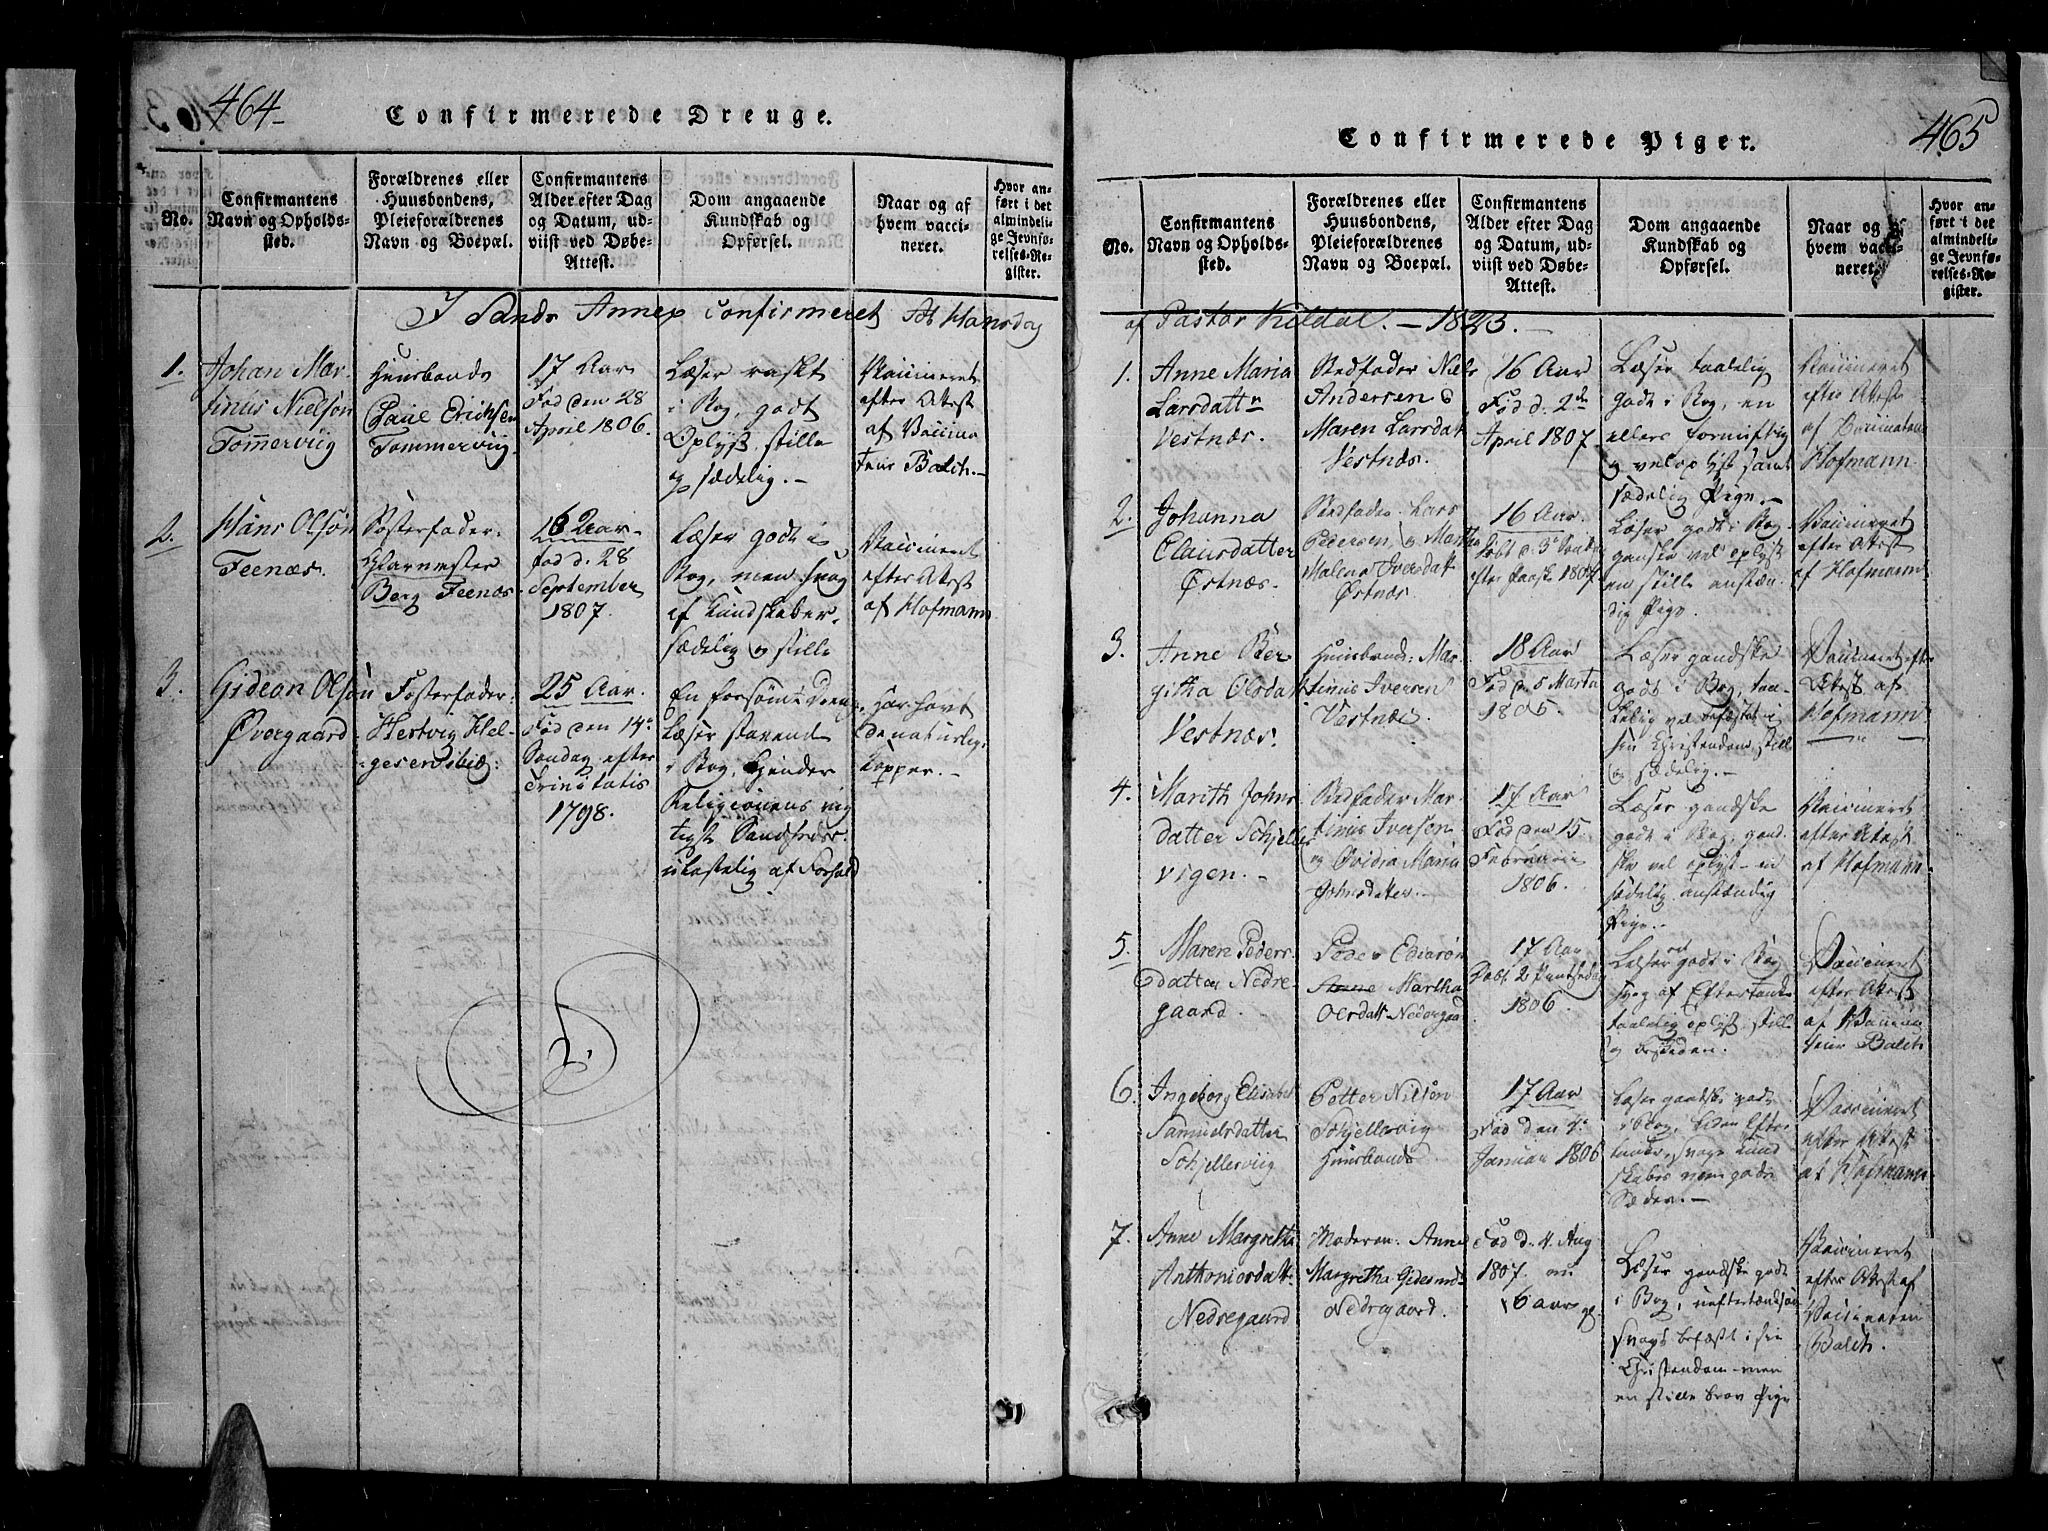 464
Confirmerede Drenge.
No.
Confirmantens
Navn og Opholds-
sted.
Forældrenes eller
Huusbondens,
Pleieforældrenes
Navn og Boepæl.
Confirmantens
Alder efter Dag
og Datum, ud-
viist ved Døbe-
Attest.
Dom angaaende
Kundskab og
Opførsel.
Naar og af
hvem vacci-
neret.
Hvor an-
ført i det
almindeli-
ge Jevnfø-
relses-Re-
gister.
I Sands Annex Confirmeret St Hansdag
1.
Johan Mar-
tinus Nielsøn
Tømmerviig
Huusbonde
Paul Erichsen
Tømmerviig.
17 Aar
Fød den 28
April 1806.
Læser raskt
i Bog, godt
Oplyst, stille
og sædelig. -
Vaccineret
efter Attest
af Vaccina
teur Balch. -
2.
Hans Olsøn
Feenæs.
Fosterfader:
Berg Feenæs.
16 Aar
fød d. 28
September
1807.
Læser godt i
Bog, men svag
af Kundskaber.
Sædelig og stille
Vaccineret
efter Attest
af Hofmann
3.
Gideon Olsøn
Øvergaard
Fosterfader:
Hertvig Hel-
gesen ibid:
25 Aar.
Fød den 14de
Søndag efter
Trinitatis
1798.
En forsømt Dreng,
Læser stavende
i Bog, kjender
Religionens vig
tigste Sandheder.
ulastelig af Forhold
Har havt
de naturlige
Kopper. -
465
Confirmerede Piger.
No.
Confirmantens
Navn og Opholds-
sted.
Forældrenes eller
Huusbondens,
Pleieforældrenes
Navn og Boepæl.
Confirmantens
Alder efter Dag
og Datum, ud-
viist ved Døbe-
Attest.
Dom angaaende
Kundskab og
Opførsel.
Naar og af
hvem vacci-
neret.
Hvor an-
ført i det
almindeli-
ge Jevnfø-
relses-Re-
gister.
af Pastor Kildal. - 1823. -
1.
Anne Maria
Larsdattr
Vestnæs.
Stedfader Niels
Andersen &
Maren Larsdat
Vestnæs.
16 Aar
Fød d. 2de
April 1807
Læser taalelig
godt i Bog, en
ellers fornuftig
og vel oplyst samt
sædelig Pige. -
Vaccineret
efter Attest
af Vaccinateur
Hofmann
2.
Johanna
Clausdatter
Østnæs.
Stedfader Lars
Pedersen, og Martha
Malena Iversdat
Østnæs.
16 Aar.
efter Paaske 1807
Læser godt i Bog
ganske vel oplyst
en stille anstæn
dig Pige.
Vaccineret
efter Attest
af Hofmann
3.
Anne Ber
githa Olsdatt
Vestnæs.
Huusbond: Mar
tinus Iversen
Vestnæs.
18 Aar
Fød d. 5 Marts
1805.
Læser gandske
godt i Bog, taa-
lelig vel befæstet i
sin Christendom, stille
og sædelig. -
Vaccineret efter
Attest af
Hofmann
4.
Marith Johns
datter Schjelles
vigen. -
Stedfader Mar
tinus Iversen
og Øvidia Maria
Johnsdatter. -
17 Aar
Fød den 15
Februarii
1806.
Læser gandske
godt i Bog, gand
ske vel oplyst - en
sædelig anstændig
Pige. -
Vaccineret
efter Attest
af Hofmann
5.
Maren Peders
datter Nedre-
gaard.
Peder Edisøn
Martha
17 Aar
Døbt 2 Pintsedag
1806
Læser godt i Bog
svag af Eftertanke
taalelig oplyst stille
og beskeden.
Vaccineret
efter Attest
af Vaccina
teur Balch
6.
Ingeborg Elisabet
Samuelsdatter
Schjellesviig
Petter Nilsøn
Schjellesvig
Huusbonde
17 Aar
Fød den
Januari 1806
Læser gandske godt
i Bog, liden Efter
tanke, svage Kund
skaber men gode
Sæder. -
Vaccineret
efter Attest
af Hofmann
7.
Anne Margretha
Anthoniusdatt
Nedregaard
Moderen: Anne
Margretha
Nedregaard.
Fød d. 4. Aug
1807. nu
16 Aar gl.
Læser gandske godt
i Bog,
svagt befæstet i sin
Christendom men
en stille brav Pige
Vaccineret
efter Attest af
Vaccinateur
Balch.